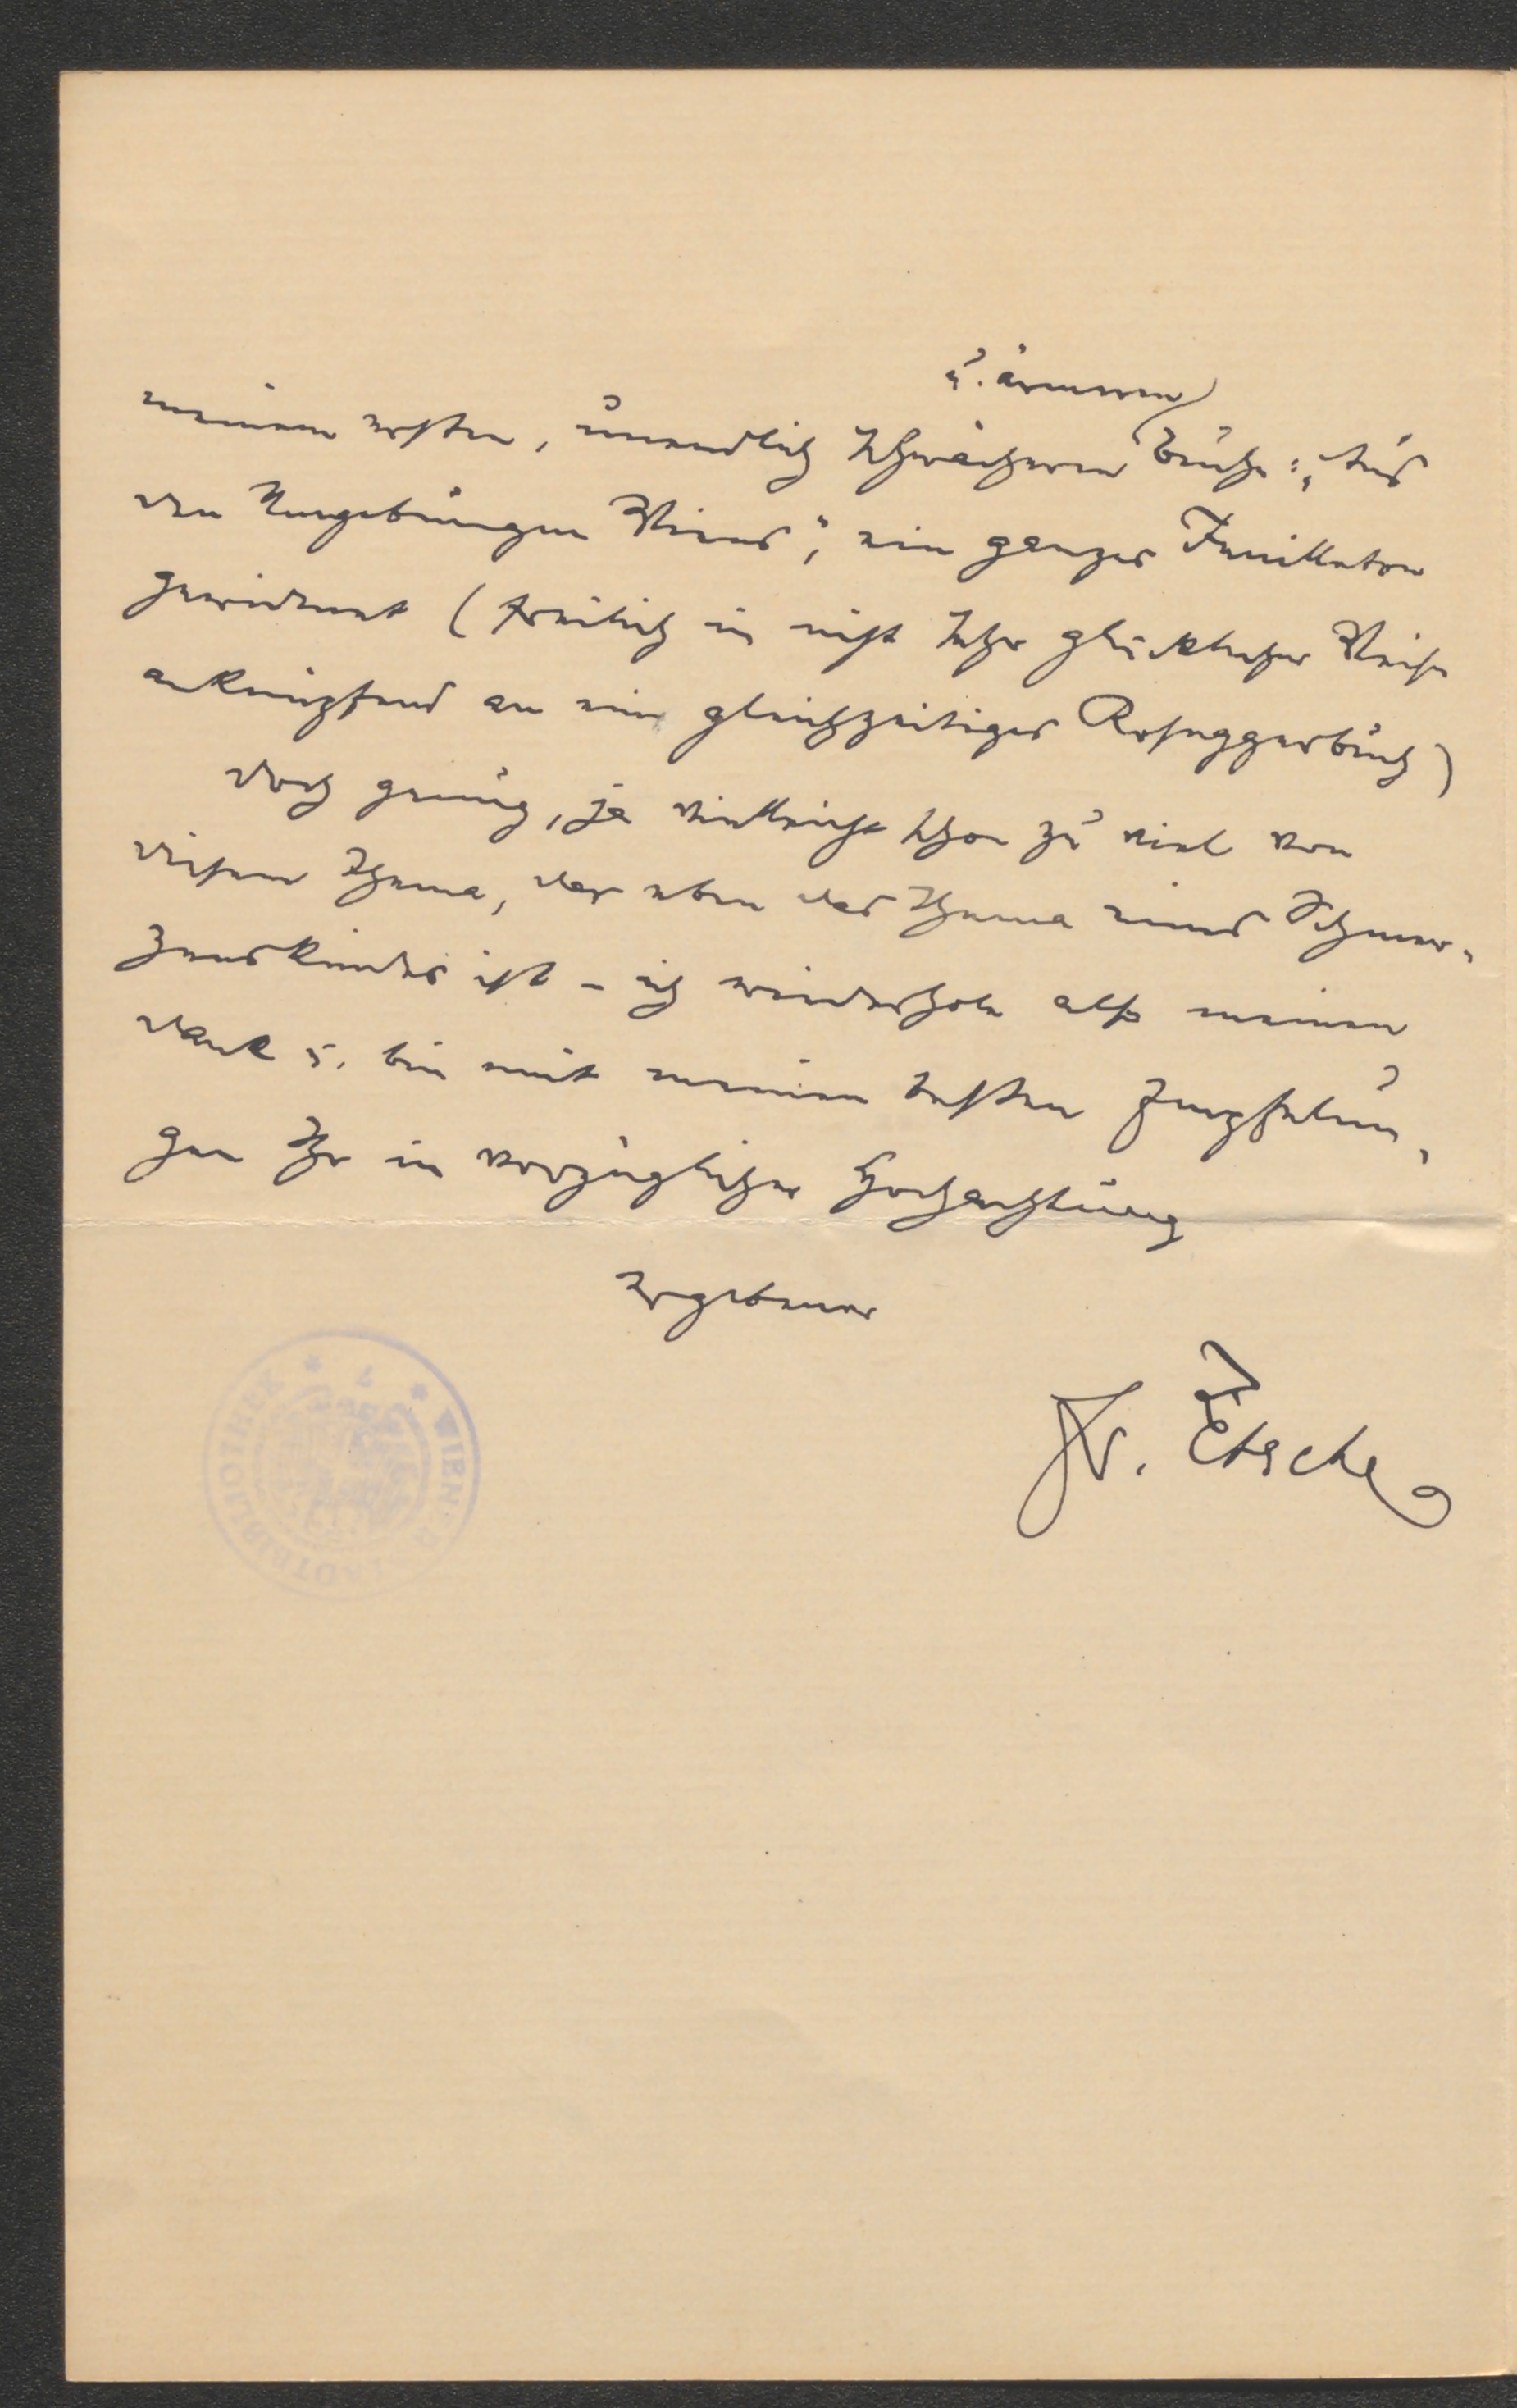 meinem ersten, unendlich schwächeren u. ärmeren Buche: „Aus
den Umgebungen Wiens“, ein ganzes Feuilleton
gewidmet (freilich in nicht sehr glücklicher Weise
anknüpfend an ein gleichzeitiges Roseggerbuch)
doch genug, ja vielleicht schon zu viel von
diesem Thema, das eben das Thema eines Schmer-
zenskindes ist – ich wiederhole also meinen
Dank u. bin mit meinen besten Empfelun-
gen Ihr in vorzüglicher Hochachtung
Ergebener
Zetsche
WIEN
BIBLIOTHEK